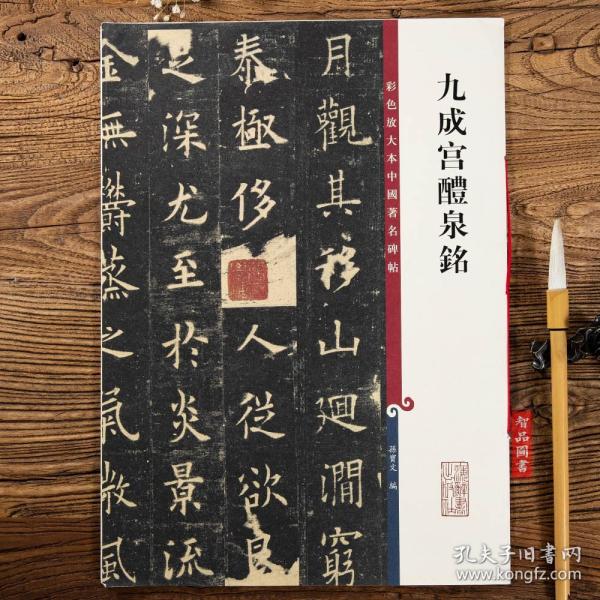 九成宫醴泉銘
彩色放大本中國著名碑帖
孫寶文 編
月觀其移山迴澗窮
泰極侈人從欲良
足深尤至於炎景流
金無鬱蒸之氣微風
智品圖書
孔夫子旧书网
www.kongfz.com